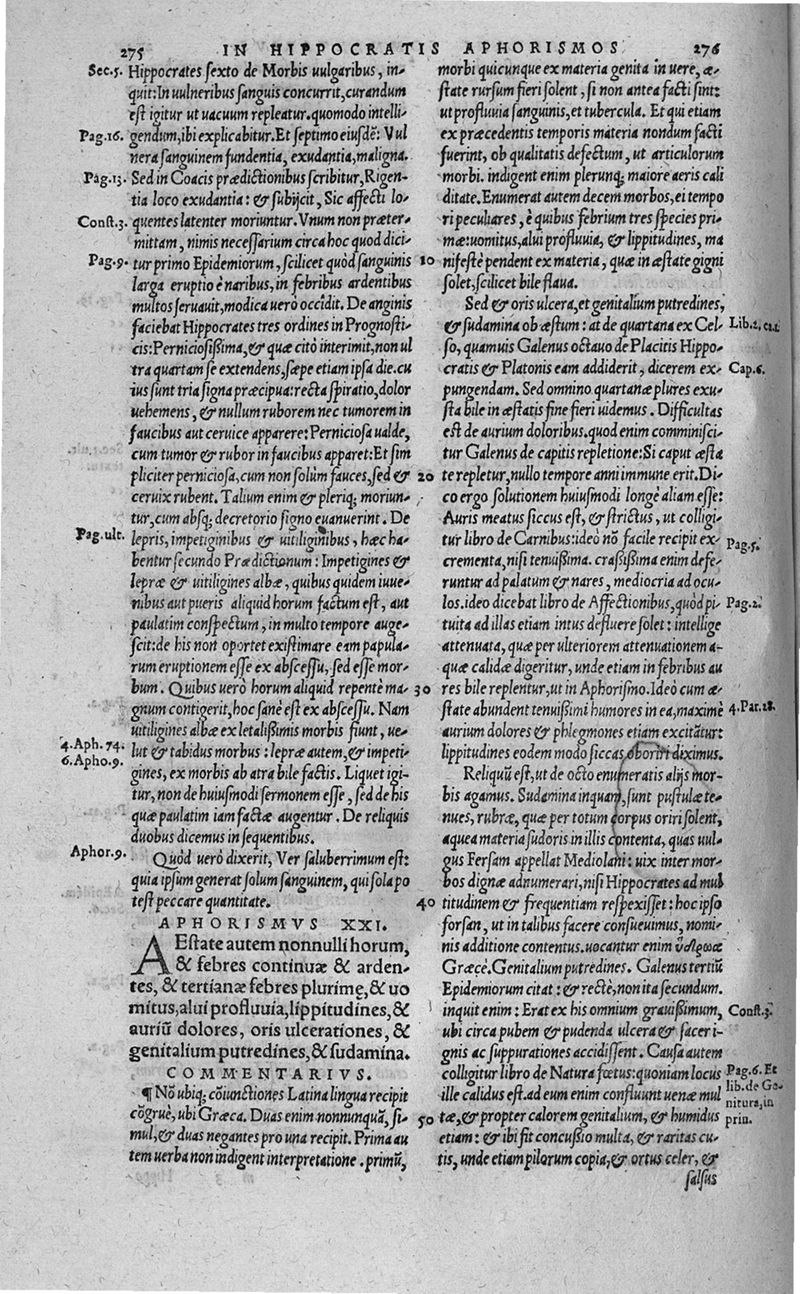 275 IN HIPPOCRATIS APHORISMOS 276
Sec.5. Hippocrates sexto de Morbis uulgaribus, in-
quit: In uulneribus sanguis concurrit, curandum
est igitur ut uacuum repleatur. quomodo intelli
Pag.16. gendum, ibi explicabitur. Et septimo eiusdē: Vul
nera sanguinem fundentia, exudantia, maligna.
Pag.13. Sed in Coacis prædictionibus scribitur, Rigen-
tia loco exudantia: & subijcit, Sic affecti lo-
Const.3. quentes latenter moriuntur. Vnum non præter-
mittam, nimis necessarium circa hoc quod dici-
Pag.9. tur primo Epidemiorum, scilicet quòd sanguinis
larga eruptio è naribus, in febribus ardentibus
multos seruauit, modica uerò occidit. De anginis
faciebat Hippocrates tres ordines in Prognosti-
cis: Perniciosissima, & quæ citò interimit, non ul
tra quartam se extendens, sæpe etiam ipsa die. cu
ius sunt tria signa præcipua: recta spiratio, dolor
uehemens, & nullum ruborem nec tumorem in
faucibus aut ceruice apparere: Perniciosa ualde,
cum tumor & rubor in faucibus apparet: Et sim
pliciter perniciosa, cum non solùm fauces, sed &
ceruix rubent. Talium enim & pleriq; moriun-
tur, cum absq; decretorio signo euanuerint. De
Pag.ult. lepris, impetiginibus & uitiliginibus, hæc ha-
bentur secundo Prædictionum: Impetigines &
lepræ & uitiligines albæ, quibus quidem iuue-
nibus aut pueris aliquid horum factum est, aut
paulatim conspectum, in multo tempore auge-
scit: de his non oportet existimare eam papula-
rum eruptionem esse ex abscessu, sed esse mor-
bum. Quibus uerò horum aliquid repentè ma-
gnum contigerit, hoc sanè est ex abscessu. Nam
uitiligines albæ ex letalissimis morbis fiunt, ue-
4.Aph.74. lut & tabidus morbus: lepræ autem, & impeti-
6.Apho.9. gines, ex morbis ab atra bile factis. Liquet igi-
tur, non de huiusmodi sermonem esse, sed de his
quæ paulatim iam factæ augentur. De reliquis
duobus dicemus in sequentibus.
Aphor.9. Quòd uerò dixerit, Ver saluberrimum est:
quia ipsum generat solum sanguinem, qui sola po
test peccare quantitate.
APHORISMVS XXI.
AEstate autem nonnulli horum,
& febres continuæ & arden-
tes, & tertianæ febres plurimę, & uo
mitus, alui profluuia, lippitudines, &
auriū dolores, oris ulcerationes, &
genitalium putredines, & sudamina.
COMMENTARIVS.
¶ Nō ubiq; cōiunctiones Latina lingua recipit
cōgruè, ubi Græca. Duas enim nonnunquā, si-
mul, & duas negantes pro una recipit. Prima au
tem uerba non indigent interpretatione. primū,
morbi quicunque ex materia genita in uere, æ-
state rursum fieri solent, si non antea facti sint:
ut profluuia sanguinis, et tubercula. Et qui etiam
ex præcedentis temporis materia nondum facti
fuerint, ob qualitatis defectum, ut articulorum
morbi. indigent enim plerunq; maiore aeris cali
ditate. Enumerat autem decem morbos, ei tempo
ri peculiares, è quibus febrium tres species pri-
mæ: uomitus, alui profluuia, & lippitudines, ma
10 nifestè pendent ex materia, quæ in æstate gigni
solet, scilicet bile flaua.
Sed & oris ulcera, et genitalium putredines,
& sudamina ob æstum: at de quartana ex Cel- Lib.2. ca.1
so, quamuis Galenus octauo de Placitis Hippo-
cratis & Platonis eam addiderit, dicerem ex- Cap.6.
pungendam. Sed omnino quartanæ plures exu-
sta bile in æstatis fine fieri uidemus. Difficultas
est de aurium doloribus. quod enim comminisci-
tur Galenus de capitis repletione: Si caput æsta
20 te repletur, nullo tempore anni immune erit. Di-
co ergo solutionem huiusmodi longè aliam esse:
Auris meatus siccus est, & strictus, ut colligi-
tur libro de Carnibus: ideò nō facile recipit ex- Pag.5.
crementa, nisi tenuissima. crassissima enim defe-
runtur ad palatum & nares, mediocria ad ocu-
los. ideo dicebat libro de Affectionibus, quòd pi- Pag.2.
tuita ad illas etiam intus defluere solet: intellige
attenuata, quæ per ulteriorem attenuationem a-
quæ calidæ digeritur, unde etiam in febribus au
30 res bile replentur, ut in Aphorismo. Ideò cum æ-
state abundent tenuissimi humores in ea, maximè 4.Par.28.
aurium dolores & phlegmones etiam excitātur:
lippitudines eodem modo siccas oboriri diximus.
Reliquū est, ut de octo enumeratis alijs mor-
bis agamus. Sudamina inquam, sunt pustulæ te-
nues, rubræ, quæ per totum corpus oriri solent,
aquea materia sudoris in illis contenta, quas uul-
gus Fersam appellat Mediolani: uix inter mor-
bos dignæ adnumerari, nisi Hippocrates ad mul
40 titudinem & frequentiam respexisset: hoc ipso
forsan, ut in talibus facere consueuimus, nomi-
nis additione contentus. uocantur enim ὕδρωα
Græcè. Genitalium putredines. Galenus tertiū
Epidemiorum citat: & rectè, non ita secundum.
inquit enim: Erat ex his omnium grauissimum, Const.3.
ubi circa pubem & pudenda ulcera & sacer i-
gnis ac suppurationes accidissent. Causa autem
colligitur libro de Natura fœtus: quoniam locus Pag.6. Et
ille calidus est. ad eum enim confluunt uenæ mul lib.de Ge-
50 tæ, & propter calorem genitalium, & humidus nitura, in
etiam: & ibi fit concussio multa, & raritas cu- prin.
tis, unde etiam pilorum copia, & ortus celer, &
salsus